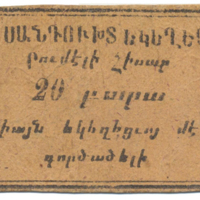 ՍԱՆԴՈՒԽՏ ԵԿԵՂԵՑ
Րումէլի Հիսար
20 բարա
միայն եկեղեցւոյ մէջ
գործածելի